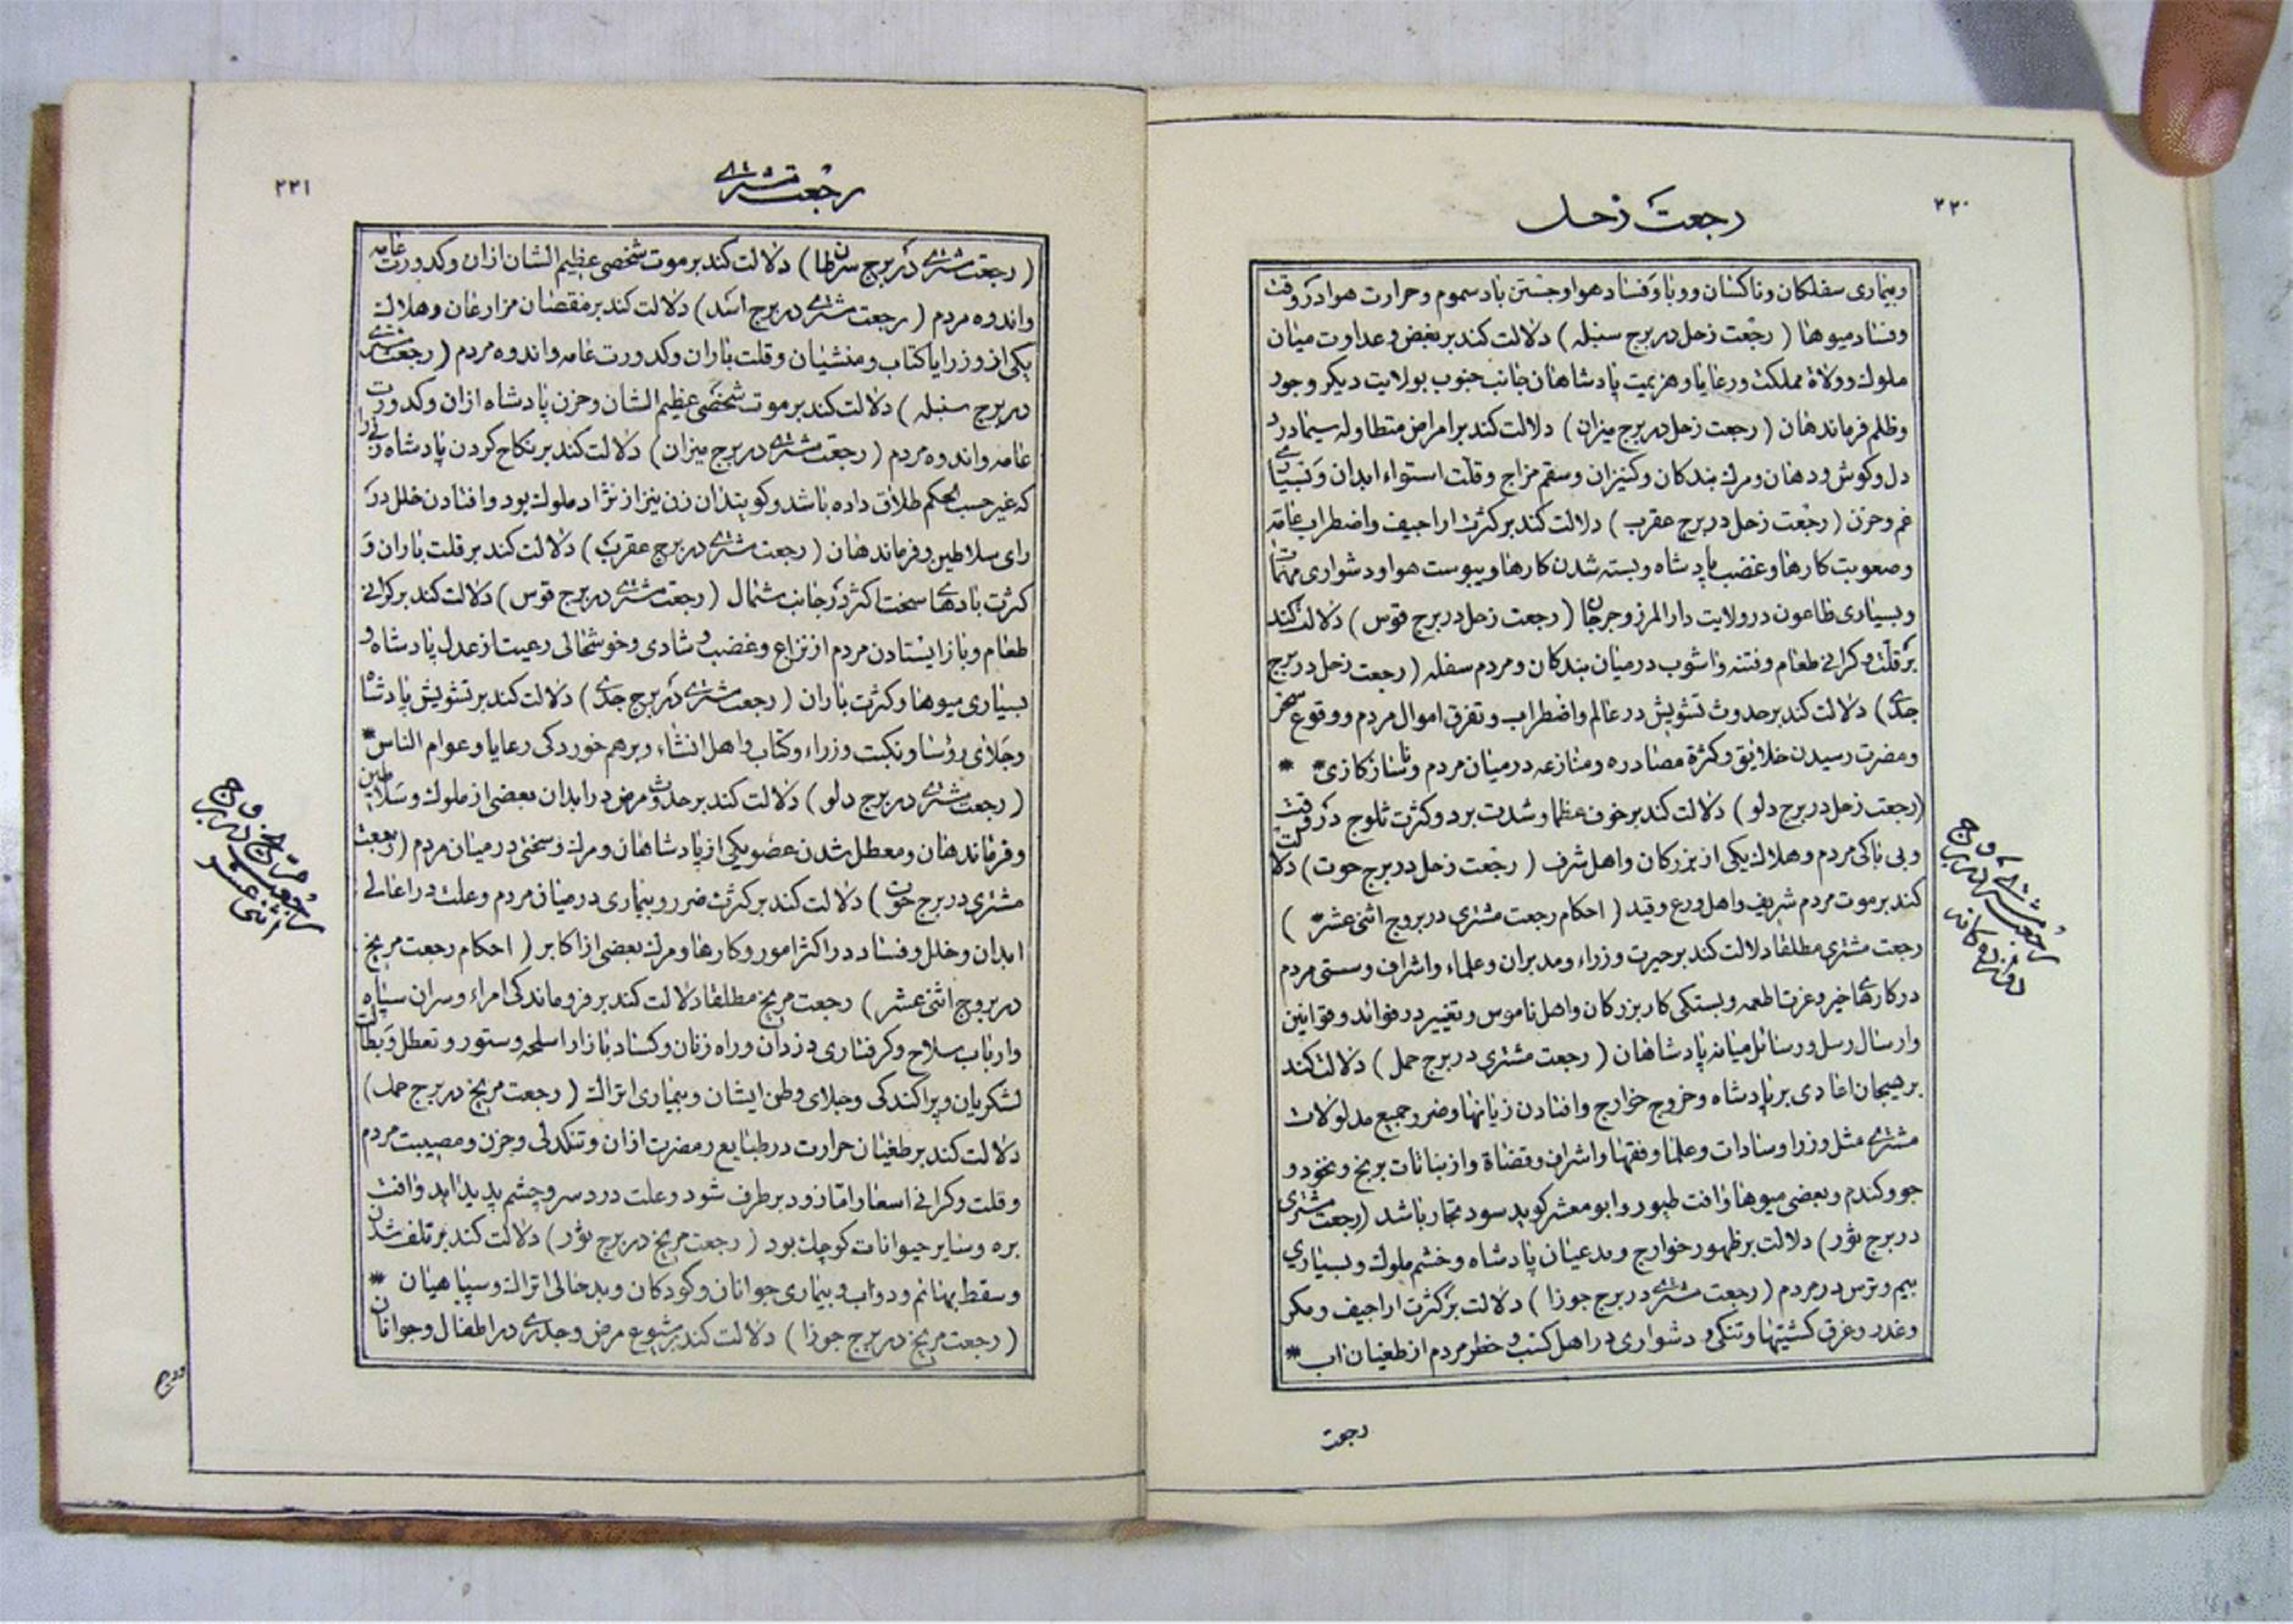 ۲۲۰
رجعت زحل
وبیماری سفلکان وناکسان ووبا وفساد هوا وجستن باد سموم وحرارت هوا در وقت
وفساد میوها ( رجعت زحل در برج سنبله ) دلالت کند بر بغض وعداوت میان
ملوک وولاة مملکت ورعایا وهزیمت پادشاهان جانب جنوب بولایت دیکر وجور
وظلم فرماندهان ( رجعت زحل در برج میزان ) دلالت کند بر امراض متطاوله سیما درد
دل وکوش ودهان ومرک بندکان وکنیزان وسقم مزاج وقلت استواء ابدان وبسیاری
غم وحزن ( رجعت زحل در برج عقرب ) دلالت کند بر کثرت اراجیف واضطراب عامه
وصعوبت کارها وغضب پادشاه وبسته شدن کارها ویبوست هوا ودشواری مهمات
وبسیاری طاعون در ولایت دار المرز وجرجان ( رجعت زحل در برج قوس ) دلالت کند
بر قلت وکرانی طعام وفتنه واشوب در میان بندکان ومردم سفله ( رجعت زحل در برج
جدی ) دلالت کند بر حدوث تشویش در عالم واضطراب وتفرق اموال مردم ووقوع سفر
ومضرت رسیدن خلایق وکثرة مصادره ومنازعه در میان مردم وناسازکاری *
( رجعت زحل در برج دلو ) دلالت کند بر خوف عظما وشدت برد وکثرت ثلوج در وقت
وبی باکی مردم وهلاک یکی از بزرکان واهل شرف ( رجعت زحل در برج حوت ) دلالت
کند بر موت مردم شریف واهل ورع وقید ( احکام رجعت مشتری در بروج اثنی عشر * )
رجعت مشتری مطلقا دلالت کند بر حیرت وزراء ومدبران وعلماء واشراف وسستی مردم
در کارهای خیر وعزت اطعمه وبستکی کار بزرکان واهل ناموس وتغییر در فوائد وقوانین
وارسال رسل ورسائل میانه پادشاهان ( رجعت مشتری در برج حمل ) دلالت کند
بر هیجان اعادی بر پادشاه وخروج خوارج وافتادن زیانها وضرر جمیع مدلولات
مشتری مثل وزرا وسادات وعلما وفقها واشراف وقضاة واز نباتات برنج ونخود و
جو وکندم وبعضی میوها وافت طیور وابو معشر کوید سود تجار باشد ( رجعت مشتری
در برج ثور ) دلالت بر ظهور خوارج ومدعیان پادشاه وخشم ملوک وبسیاری
بیم وترس در مردم ( رجعت مشتری در برج جوزا ) دلالت بر کثرت اراجیف ومکر
وغدر وغرق کشتیها وتنکی ودشواری در اهل کتب وخطر مردم از طغیان اب *
رجعت
رجعت مشتری در بروج
دوازده کانه
۲۲۱
رجعت مشتری
( رجعت مشتری در برج سرطان ) دلالت کند بر موت شخصی عظیم الشان ازان وکدورت عامه
واندوه مردم ( رجعت مشتری در برج اسد ) دلالت کند بر نقصان مزارعان وهلاک
یکی از وزرا یا کتاب ومنشیان وقلت باران وکدورت عامه واندوه مردم ( رجعت مشتری
در برج سنبله ) دلالت کند بر موت شخصی عظیم الشان وحزن پادشاه ازان وکدورت
عامه واندوه مردم ( رجعت مشتری در برج میزان ) دلالت کند بر نکاح کردن پادشاه زنی را
که غیر حسب الحکم طلاق داده باشد وکویند ان زن نیز از نژاد ملوک بود وافتادن خلل در
رای سلاطین وفرماندهان ( رجعت مشتری در برج عقرب ) دلالت کند بر قلت باران و
کثرت بادهای سخت اکثر در جانب شمال ( رجعت مشتری در برج قوس ) دلالت کند بر کرانی
طعام وباز ایستادن مردم از نزاع وغضب وشادی وخوشحالی رعیت از عدل پادشاه و
بسیاری میوها وکثرت باران ( رجعت مشتری در برج جدی ) دلالت کند بر تشویش پادشاه
وجلای رؤسا ونکبت وزراء وکتاب واهل انشاء وبرهم خوردکی رعایا وعوام الناس *
( رجعت مشتری در برج دلو ) دلالت کند بر حدوث مرض در ابدان بعضی از ملوک وسلاطین
وفرماندهان ومعطل شدن عضو یکی از پادشاهان ومرک وسختی در میان مردم ( رجعت
مشتری در برج حوت ) دلالت کند بر کثرت ضرر وبیماری در میان مردم وعلت در اعالی
ابدان وخلل وفساد در اکثر امور وکارها ومرک بعضی از اکابر ( احکام رجعت مریخ
در بروج اثنی عشر ) رجعت مریخ مطلقا دلالت کند بر فروماندکی امراء وسران سپاه
وارباب سلاح وکرفتاری دزدان وراه زنان وکساد بازار اسلحه وستور وتعطل وبطالت
لشکریان وپراکندکی وجلای وطن ایشان وبیماری اتراک ( رجعت مریخ در برج حمل )
دلالت کند بر طغیان حرارت در طبایع ومضرت ازان وتنکدلی وحزن ومصیبت مردم
وقلت وکرانی اسعار اما زود بر طرف شود وعلت درد سر وچشم پدید اید وافت
بره وسایر حیوانات کوچک بود ( رجعت مریخ در برج ثور ) دلالت کند بر تلف شدن
وسقط بهائم ودواب وبیماری جوانان وکودکان وبدحالی اتراک وسپاهیان *
( رجعت مریخ در برج جوزا ) دلالت کند بر شیوع مرض وجدری در اطفال وجوانان
رجعت مریخ در بروج
اثنی عشر